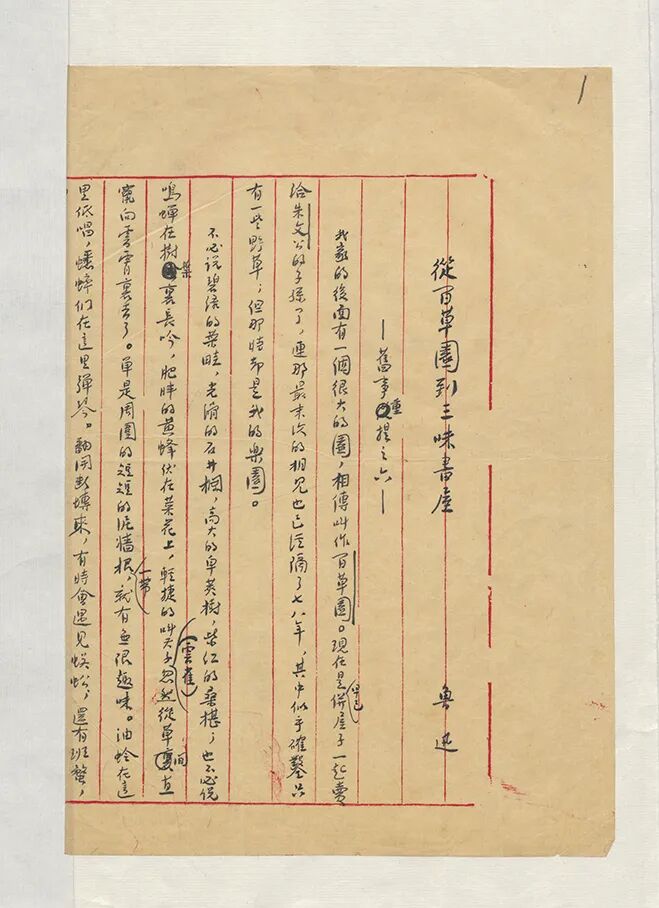 1
從百草園到三味書屋
魯迅
—舊事重提之六—
我家的後面有一個很大的園，相傳叫作百草園。現在是早已併屋子一起賣
給朱文公的子孫了，連那最末次的相見也已經隔了七八年，其中似乎確鑿只
有一些野草；但那時却是我的樂園。
不必说碧绿的菜畦，光滑的石井欄，高大的皁荚樹，紫红的桑椹；也不必说
鳴蟬在樹葉裏長吟，肥胖的黃蜂伏在菜花上，輕捷的叫天子（雲雀）忽然從草間直
竄向雲霄裏去了。單是周圍的短短的泥牆根一帶，就有無限趣味。油蛉在這
里低唱，蟋蟀們在這里彈琴。翻開断塼來，有時會遇見蜈蚣；還有斑蝥，